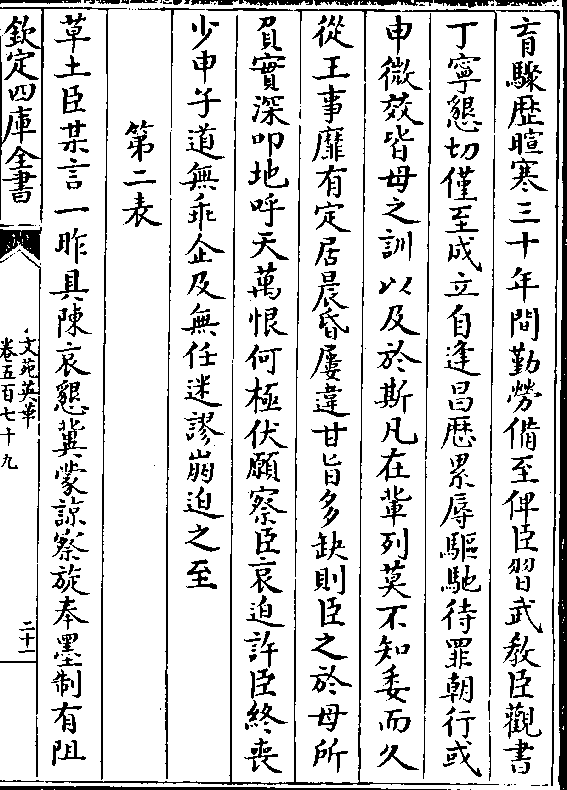 育驟歴暄寒三十年間勤勞備至俾臣習武教臣觀書
丁寧懇切僅至成立自逢昌歴累辱驅馳待罪朝行或
申微效皆母之訓以及於斯凡在輩列莫不知委而久
從王事靡有定居晨昏屢違甘旨多缺則臣之於母所
負實深叩地呼天萬恨何極伏願察臣哀迫許臣終喪
少申子道無乖企及無任迷謬崩迫之至
第二表
草土臣某言一昨具陳哀懇冀蒙諒察旋奉墨制有阻
欽定四庫全書
文苑英華
卷五百七十九
二十一